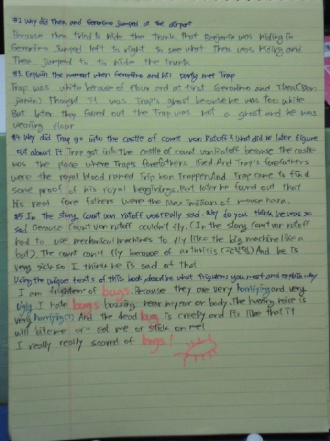 #1 Why did Thea and Geronimo Jumped at the airport
Because Thea tried to hide the trunk that Benjamin was hiding in
Geronimo Jumped left to right to see what Thea was hiding and
Thea Jumped to to hide the trunk
#3. Explain the moment when Geronimo and his party met Trap
Trap was white because of flour and at first Geronimo and Thea (Ben-
jamin) thought it was Trap's ghost because he was too white
But later they found out the Trap was not a ghost and he was
wearing flour
Why did Trap go into the castle of count von Ratoff & what did he later figure
out about it Trap got into the castle of count von Ratoff because the castle
was the place where Trap's forefathers lived And Trap's forefathers
were the royal blood named Trip von Trappen And Trap came to find
some proof of his royal beggings. But later he found out that
his real fore fathers were the of mouse hara.
#5 In the story, count von ratoff was really sad. Why do you think he was so
sad Because Count von ratoff couldn't fly. (In the story count von ratoff
had to use mechanical machines to fly like the big machine like a
bat). The count can't fly because of arthritis (관절염) And he is
very sick so I think he is sad of that
Using the unique texts of this book, describe what frightens you most and explain why
I am frighten of bugs. Because they are very horrifying and very
ugly I hate bugs buzzing near my ear or body. The buzzing noise is
very horrifying(?) And the dead bug is creepy and its like that it
will bite me or eat me or stick on me!
I really really scared of bugs!